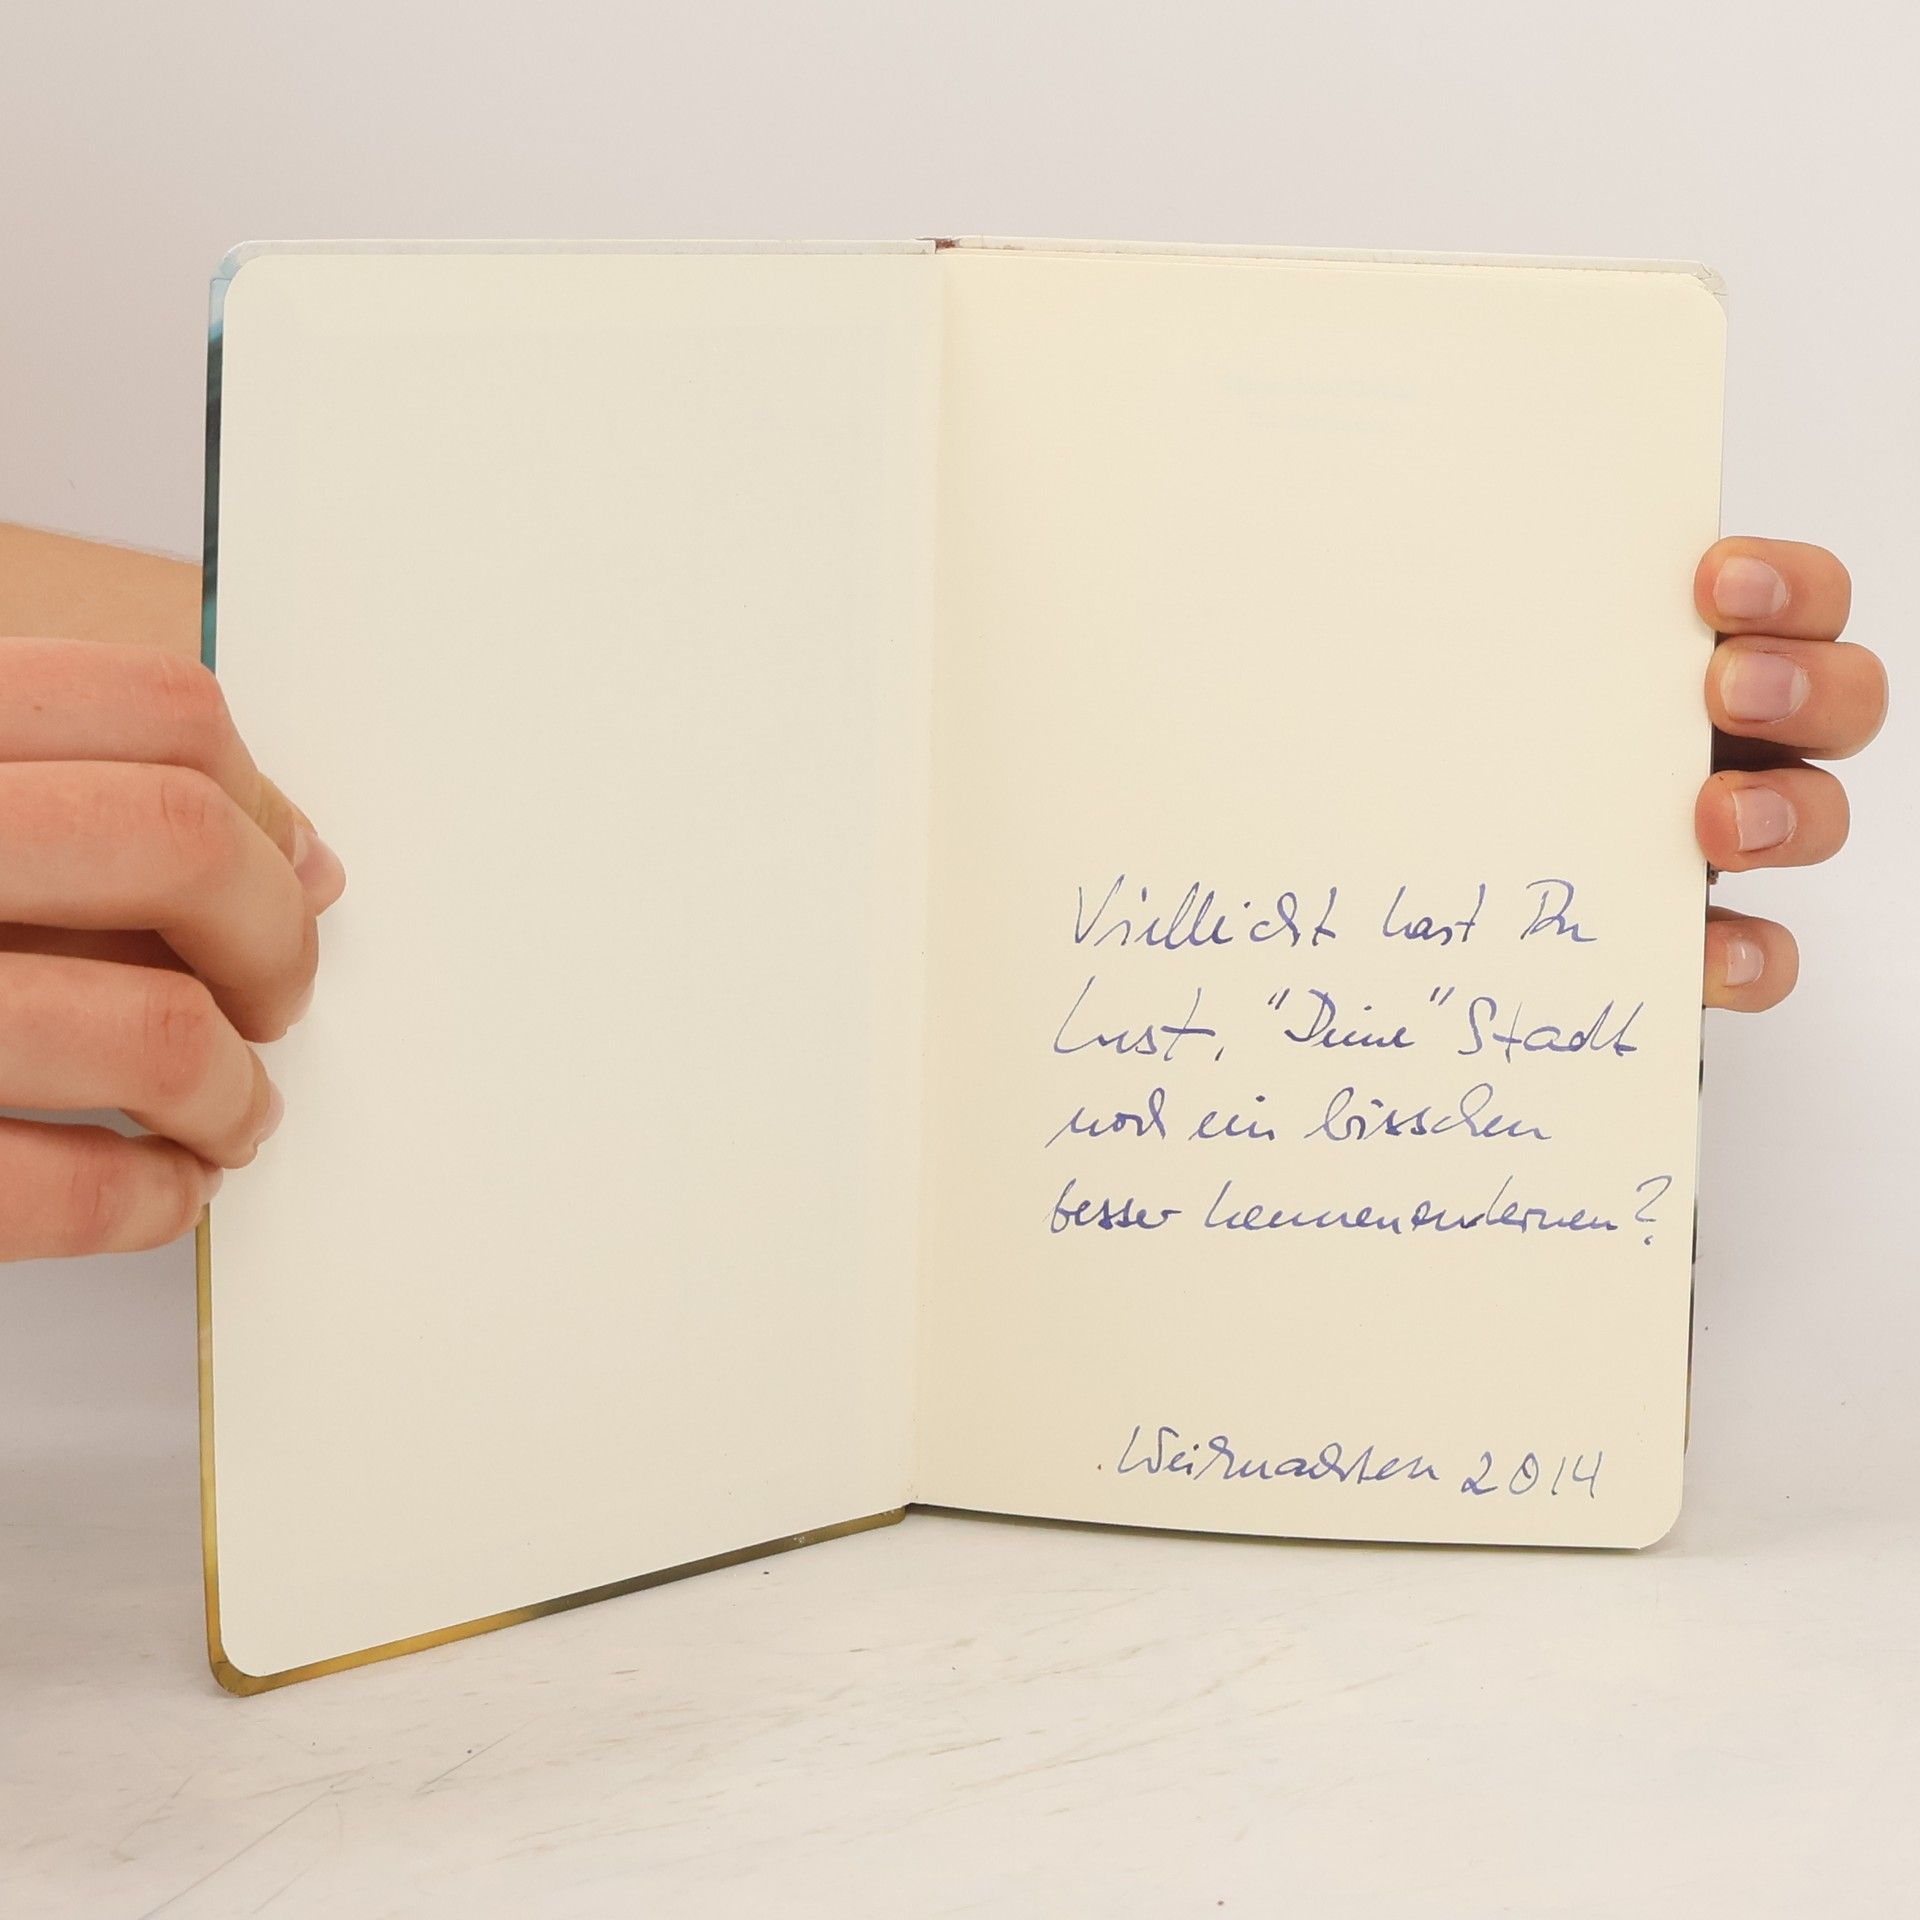 Vielleicht hast Du
Lust, "Deine" Stadt
noch ein bisschen
besser kennenzulernen?
Weihnachten 2014